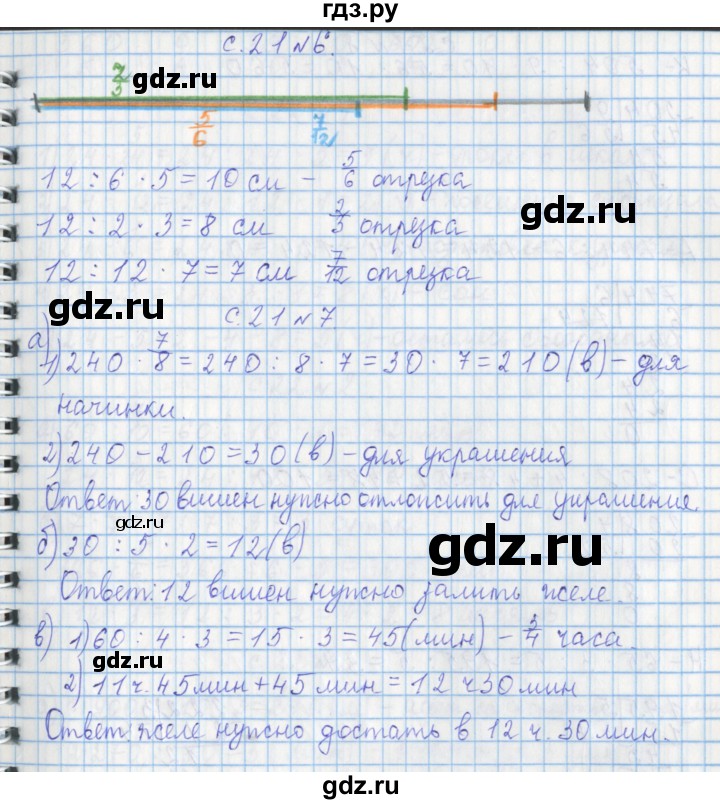 гдз.ру
с.21 №6.
2/3
gdz.ru
5/6
7/12
12 : 6 · 5 = 10 см – 5/6 отрезка
12 : 2 · 3 = 8 см 2/3 отрезка
12 : 12 · 7 = 7 см 7/12 отрезка
gdz.ru
с.21 №7
gdz.ru
а)
1) 240 · 7/8 = 240 : 8 · 7 = 30 · 7 = 210 (в) – для
начинки.
2) 240 – 210 = 30 (в) – для украшения
Ответ: 30 вишен нужно отложить для украшения.
gdz.ru
б) 30 : 5 · 2 = 12 (в)
gdz.ru
Ответ: 12 вишен нужно залить желе.
в) 1) 60 : 4 · 3 = 15 · 3 = 45 (мин) – 3/4 часа.
gdz.ru
2) 11 ч. 45 мин + 45 мин = 12 ч 30 мин
Ответ: желе нужно достать в 12 ч. 30 мин.
gdz.ru